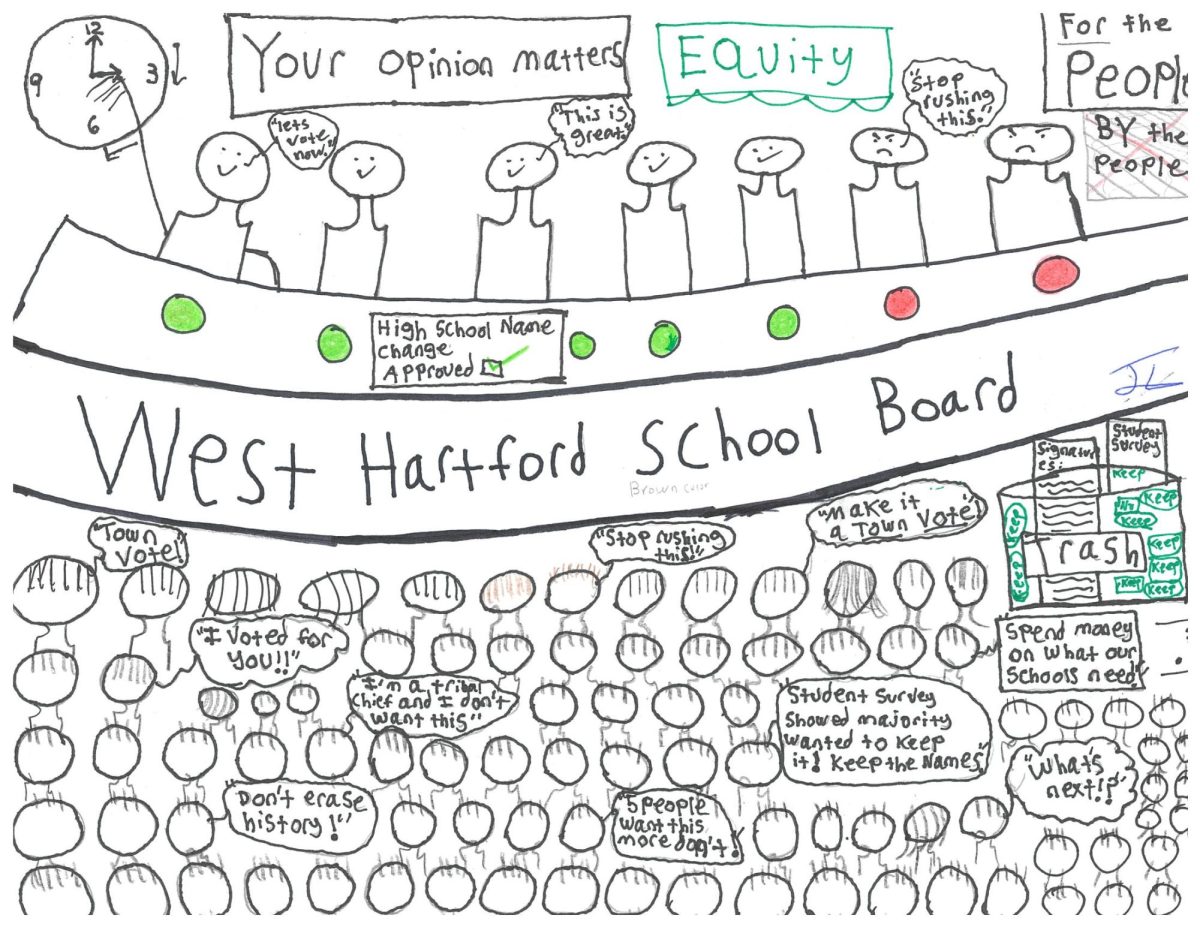 12
9
3
6
Your opinion matters
EQuity
For the
PEOPLE
BY the
PEOPLE
"lets
vote
now."
"This is
great."
"Stop
rushing
this."
High School Name
change
APProved
West Hartford School Board
Brown color
JL
Signatur
es:
Student
Survey
Keep
Keep
Keep
Keep
Keep
Keep
Keep
Keep
Keep
Keep
Trash
"Town
Vote!"
"Stop rushing
this!"
"Make it
a Town Vote!"
"I voted for
YOU!!"
Spend money
on what our
Schools need
"I'm a tribal
Chief and I don't
want this"
Student Survey
Showed majority
wanted to keep
it! Keep the Names"
"What's
next!?"
"Don't erase
history!"
"5 people
want this
more don't!